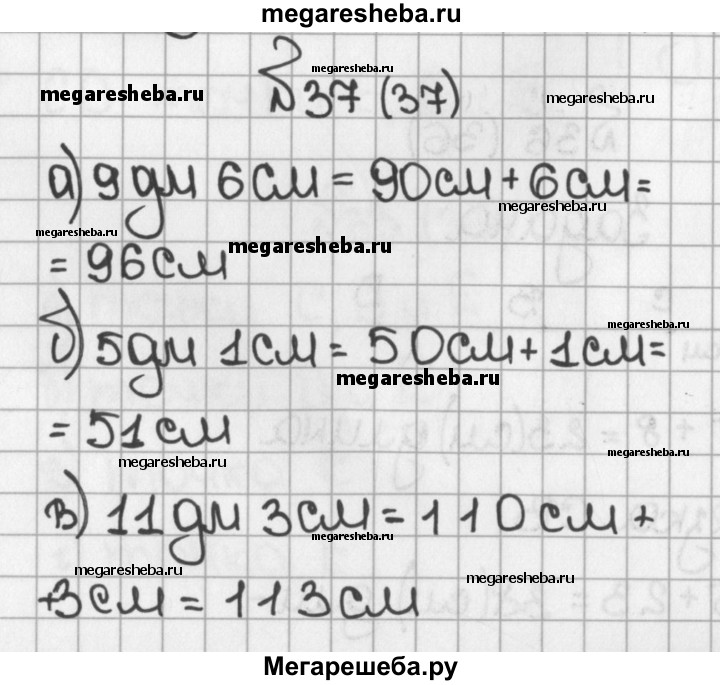 megaresheba.ru
megaresheba.ru
№37 (37)
megaresheba.ru
megaresheba.ru
а) 9 дм 6 см = 90 см + 6 см =
megaresheba.ru
megaresheba.ru
= 96 см
megaresheba.ru
б) 5 дм 1 см = 50 см + 1 см =
megaresheba.ru
megaresheba.ru
= 51 см
megaresheba.ru
megaresheba.ru
в) 11 дм 3 см = 110 см +
megaresheba.ru
megaresheba.ru
+3 см = 113 см
megaresheba.ru
Мегарешеба.ру